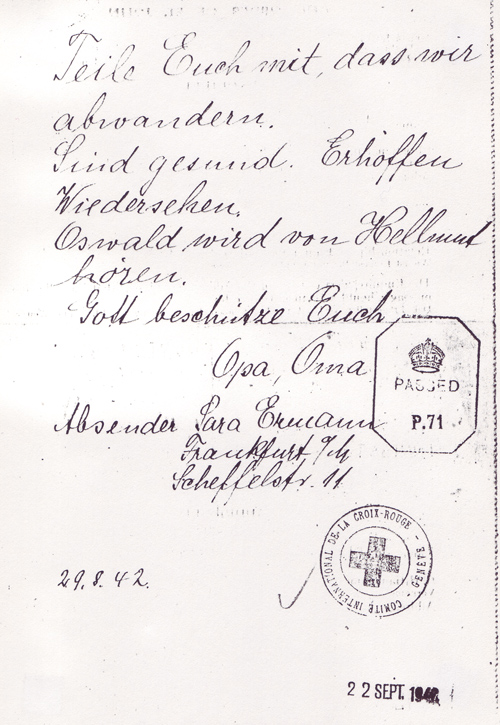 Teile Euch mit, dass wir
abwandern.
Sind gesund. Erhoffen
Wiedersehen.
Oswald wird von Hellmut
hören.
Gott beschütze Euch
Opa, Oma
PASSED
P.71
Absender Sara Ermann
Frankfurt a/M
Scheffelstr. 11
COMITÉ INTERNATIONAL DE LA CROIX-ROUGE - GENÈVE -
29.8.42.
22 SEPT. 1942